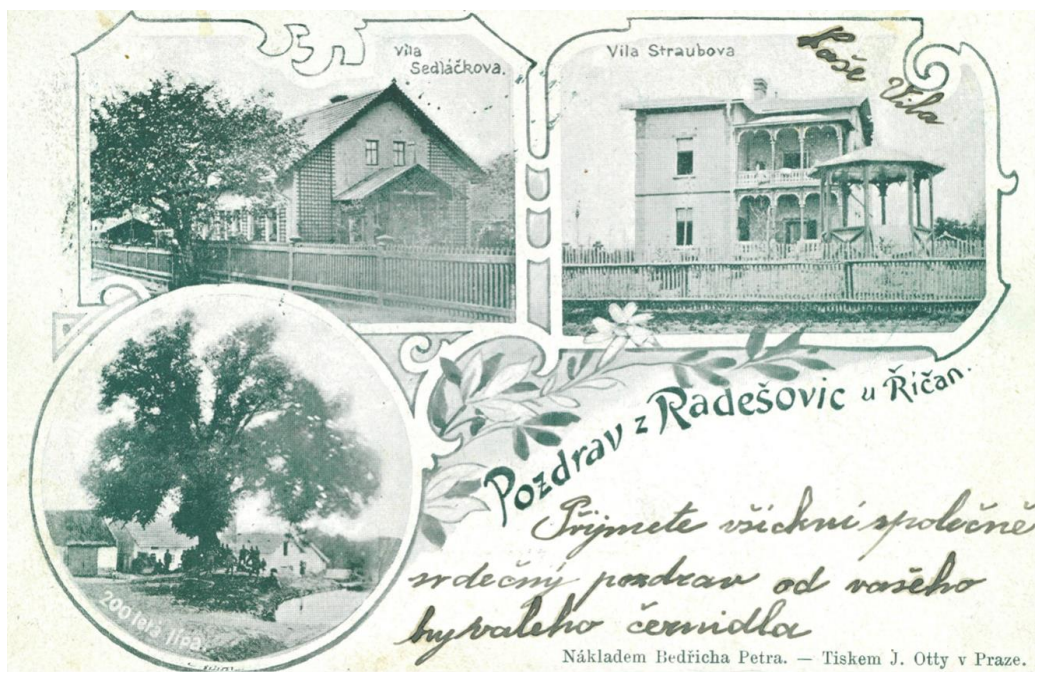 Vila
Sedláčkova.
Vila Straubova
Vila
200 letá lípa.
Pozdrav z Radešovic u Říčan.
Přijmete všickni společně
srdečný pozdrav od vašeho
byvaleho černidla
Nákladem Bedřicha Petra. — Tiskem J. Otty v Praze.